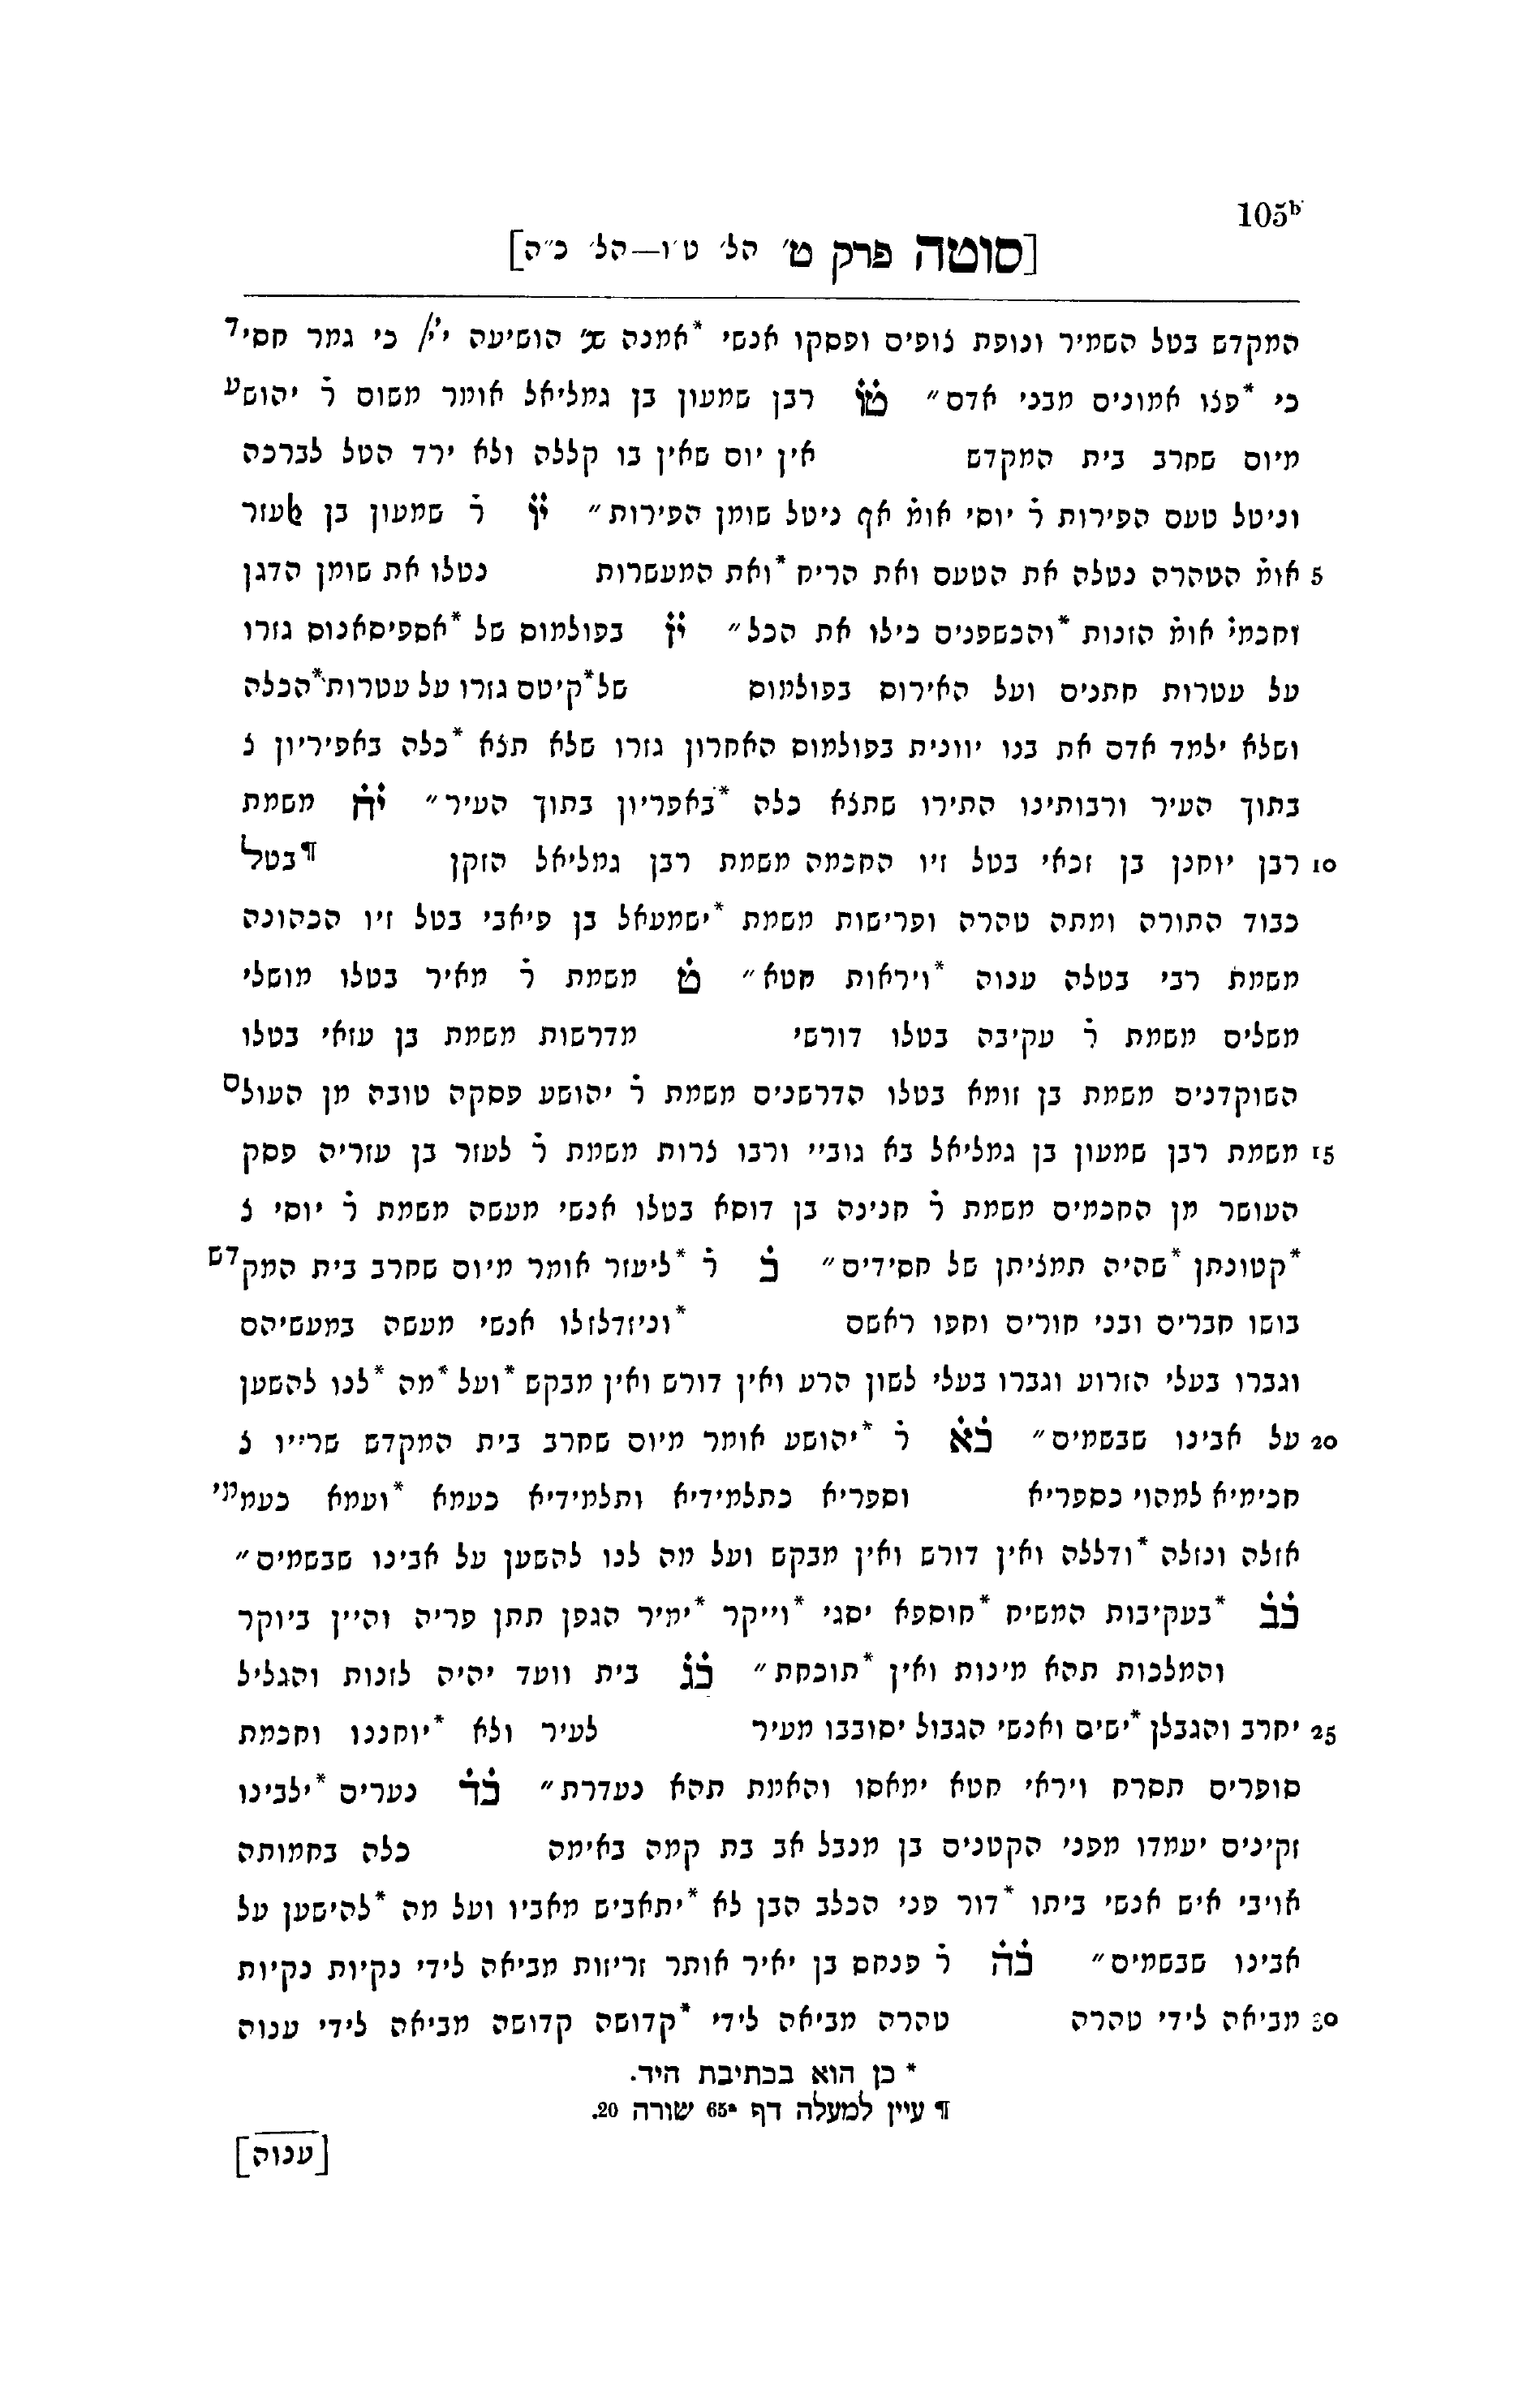 105ᵇ
[סוטה פרק ט׳ הל׳ ט״ו—הל׳ כ״ה]
המקדש בטל השמיר ונופת צופים ופסקו אנשי *אמנה שנ׳ הושיעה י׳י׳/ כי גמר חסיד
כי *פצו אמונים מבני אדם״ טו רבן שמעון בן גמליאל אומר משום ר׳ יהושע
מיום שחרב בית המקדש אין יום שאין בו קללה ולא ירד הטל לברכה
וניטל טעם הפירות ר׳ יוסי אומ׳ אף ניטל שומן הפירות״ יו ר׳ שמעון בן לעזר
5 אומ׳ הטהרה נטלה את הטעם ואת הריח *ואת המעשרות נטלו את שומן הדגן
וחכמי׳ אומ׳ הזנות *והכשפנים כילו את הכל״ יז בפולמוס של *אספיסאנוס גזרו
על עטרות חתנים ועל האירוס בפולמוס של *קיטס גזרו על עטרות *הכלה
ושלא ילמד אדם את בנו יוונית בפולמוס האחרון גזרו שלא תצא *כלה באפיריון צ
בתוך העיר ורבותינו התירו שתצא כלה *באפריון בתוך העיר״ יח משמת
10 רבן יוחנן בן זכאי בטל זיו החכמה משמת רבן גמליאל הזקן ¶בטל
כבוד התורה ומתה טהרה ופרישות משמת *ישמעאל בן פיאבי בטל זיו הכהונה
משמת רבי בטלה ענוה *ויראות חטא״ ט משמת ר׳ מאיר בטלו מושלי
משלים משמת ר׳ עקיבה בטלו דורשי מדרשות משמת בן עזאי בטלו
השוקדנים משמת בן זומא בטלו הדרשנים משמת ר׳ יהושע פסקה טובה מן העולם
15 משמת רבן שמעון בן גמליאל בא גוביי ורבו צרות משמת ר׳ לעזר בן עזריה פסק
העושר מן החכמים משמת ר׳ חנינה בן דוסא בטלו אנשי מעשה משמת ר׳ יוסי צ
*קטונתן *שהיה תמציתן של חסידים״ כ ר׳ *ליעזר אומר מיום שחרב בית המקדש
בושו חברים ובני חורים וחפו ראשם *וניזדלזלו אנשי מעשה במעשיהם
וגברו בעלי הזרוע וגברו בעלי לשון הרע ואין דורש ואין מבקש *ועל *מה *לנו להשען
20 על אבינו שבשמים״ כא ר׳ *יהושע אומר מיום שחרב בית המקדש שרייו צ
חכימיא למהוי כספריא וספריא כתלמידיא ותלמידיא כעמא *ועמא כעממי
אזלה ונזלה *ודללה ואין דורש ואין מבקש ועל מה לנו להשען על אבינו שבשמים״
כב *בעקיבות המשיח *חוספא יסגי *וייקר *ימיר הגפן תתן פריה והיין ביוקר
והמלכות תהא מינות ואין *תוכחת״ כג בית וועד יהיה לזנות והגליל
25 יחרב והגבלן *ישים ואנשי הגבול יסובבו מעיר לעיר ולא *יוחננו וחכמת
סופרים תסרח ויראי חטא ימאסו והאמת תהא נעדרת״ כד נערים *ילבינו
זקינים יעמדו מפני הקטנים בן מנבל אב בת קמה באימה כלה בחמותה
אויבי איש אנשי ביתו *דור פני הכלב הבן לא *יתאביש מאביו ועל מה *להישען על
אבינו שבשמים״ כה ר׳ פנחס בן יאיר אותר זריזות מביאה לידי נקיות נקיות
30 מביאה לידי טהרה טהרה מביאה לידי *קדושה קדושה מביאה לידי ענוה
* כן הוא בכתיבת היד.
¶ עיין למעלה דף 65ᵃ שורה 20.
[ענוה]